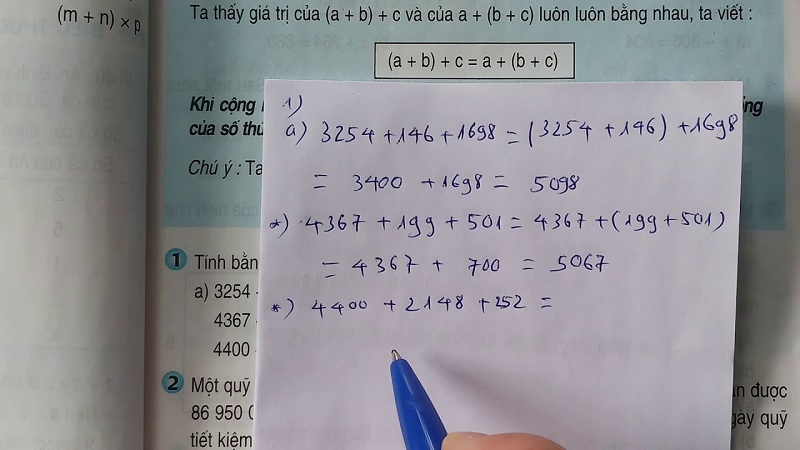 (m + n) × p
Ta thấy giá trị của (a + b) + c và của a + (b + c) luôn luôn bằng nhau, ta viết :
(a + b) + c = a + (b + c)
Khi cộng
của số
Chú ý : Ta
1)
a) 3254 + 146 + 1698 = (3254 + 146) + 1698
= 3400 + 1698 = 5098
*) 4367 + 199 + 501 = 4367 + (199 + 501)
= 4367 + 700 = 5067
*) 4400 + 2148 + 252 =
1 Tính bằn
a) 3254
4367
4400
2 Một quỹ
được
86 950
ngày quỹ
tiết kiệm